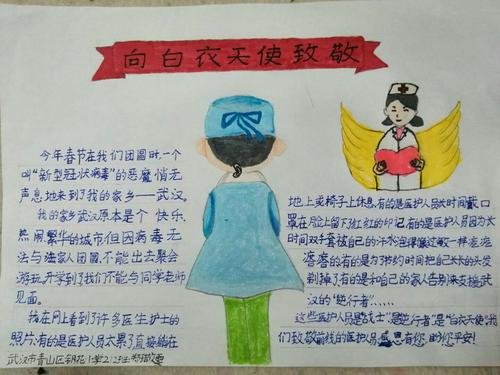 向白衣天使致敬
今年春节在我们团圆时,一个
叫“新型冠状病毒”的恶魔悄无
声息地来到了我的家乡——武汉。
我的家乡武汉原本是个快乐、
热闹、繁华的城市,但因病毒无
法与远家人团圆,不能出去聚会
游玩,开学到了我们不能与同学老师
见面。
我在网上看到了许多医生护士的
照片:有的是医护人员太累了直接躺在
武汉市青山区钢花小学
地上或椅子上休息,有的是医护人员长时间戴口
罩在脸上留下红红的印记,有的是医护人员因为长
时间双手套被自己的汗水泡得像过敏一样疙疙
瘩瘩的,有的是为了节约时间把自己长长的头发
剃掉了,有的是和自己的家人告别来支援武
汉的“逆行者”……
这些医护人员是“战士”是“逆行者”,是“白衣天使”,我
们致敬前线的医护人员,感恩有你,助你平安!